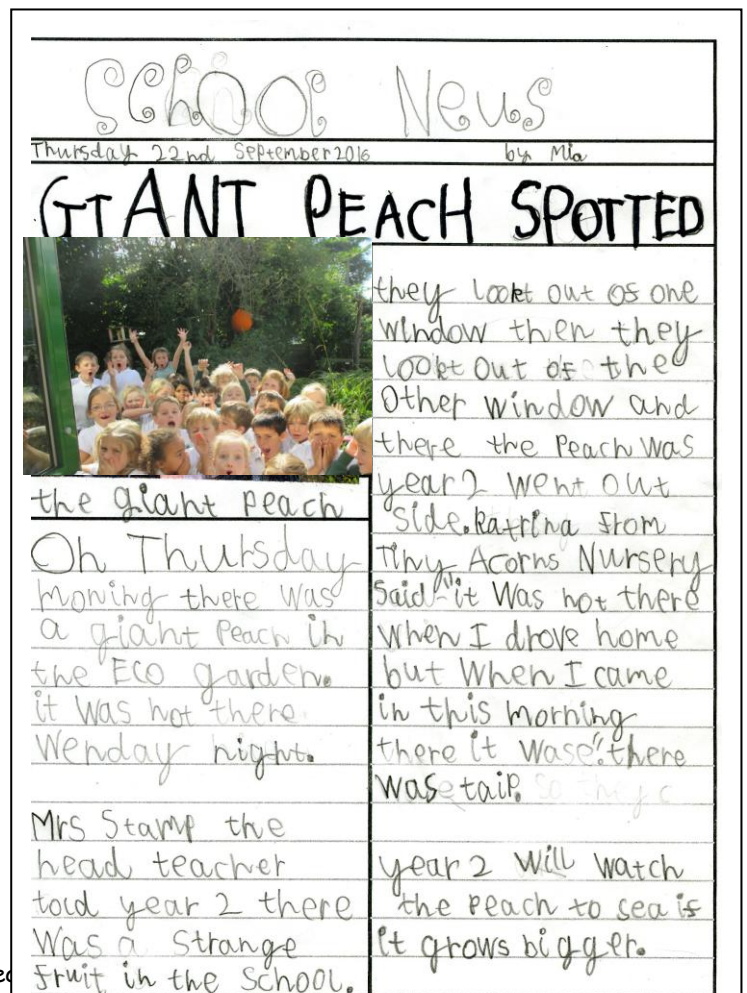 School News
Thursday 22nd September 2016 by Mia
GIANT PEACH SPOTTED
the giant peach
On Thursday
moning there was
a giant Peach in
the ECO garden.
it was not there
Wenday night.
Mrs Stamp the
head teacher
told year 2 there
Was a Strange
fruit in the School.
they lookt out of one
window then they
lookt out of the
Other window and
there the Peach was
year 2 went out
side. Katrina from
Tiny Acorns Nursery
Said "it was not there
when I drove home
but when I came
in this morning
there it wase". there
wase taip.
year 2 will watch
the peach to sea if
it grows bigger.